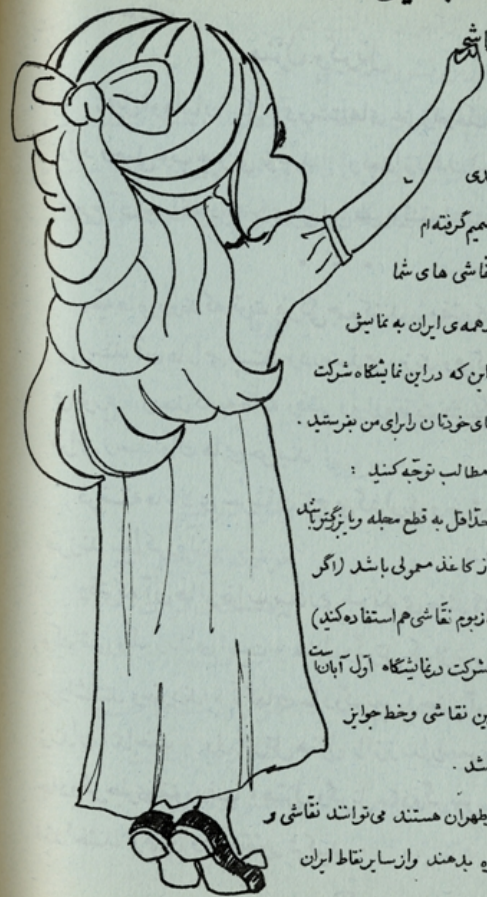 نقاشی
دی
میم گرفته‌ام
نقاشی های شما
رهمه‌ی ایران به نمایش
این که در این نمایشگاه شرکت
های خودتان را برای من بفرستید .
مطالب توجّه کنید :
حدّاقل به قطع مجله و یا بزرگتر باشد
از کاغذ معمولی باشد (اگر
از بوم نقّاشی هم استفاده کند)
شرکت در نمایشگاه اول آبان است
ین نقاشی وخط جوایز
شد .
طهران هستند می‌توانند نقّاشی و
ه بدهند و از سایر نقاط ایران